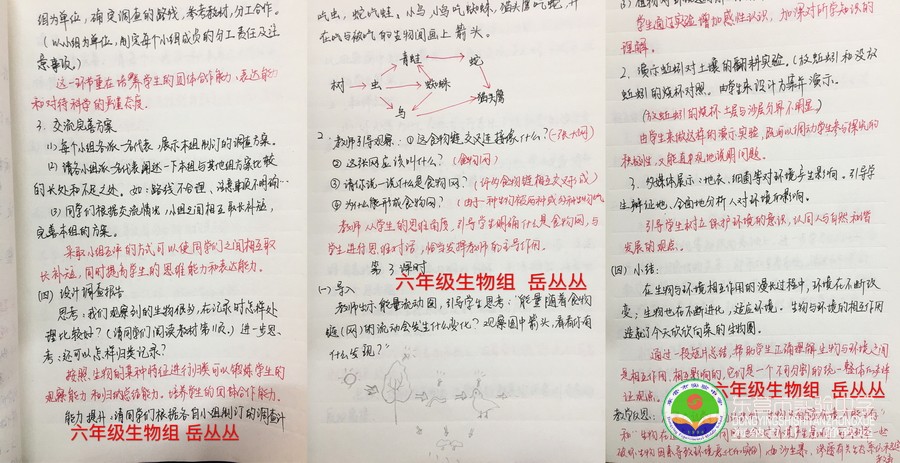 组为单位，确定调查的路线，参考教材，分工合作。
(以小组为单位，制定每个小组成员的分工责任及注
意事项。)
这一环节重在培养学生的团体合作能力，表达能力
和对待科学的严谨态度。
3. 交流完善方案
(1) 每个小组各派一名代表，展示本组制订的调查方案。
(2) 请各小组派一名代表阐述一下本组与其他组方案比较
的长处和不足之处。如：路线不合理，注意事项不明确…
(3) 同学们根据交流情况，小组之间相互取长补短，
完善本组的方案。
采取小组互评的方式可以使同学们之间相互取
长补短，同时提高学生的思维能力和表达能力。
(四) 设计调查报告
思考：我们观察到的生物很多，在记录时怎样处
理比较好？(请同学们阅读教材第11页。) 进一步思
考：还可以怎样归类记录？
按照生物的某种特征进行归类可以锻炼学生的
观察能力和归纳总结能力。培养学生的团结合作能力。
能力提升：请同学们根据各自小组制订的调查计
六年级生物组 岳丛丛
吃虫，蛇吃蛙。小鸟，小鸟吃蜘蛛，猫头鹰吃蛇，并
在吃与被吃的生物间画上箭头。
青蛙 蛇
树 虫 蜘蛛
鸟 猫头鹰
2. 教师引导观察：①这食物链交叉连接像什么？(一张大网)
②这张网应该叫什么？(食物网)
③请你说一说什么是食物网？(许多食物链相互交叉形成)
④为什么能形成食物网？
教师从学生的思维角度，引导学生明确什么是食物网，与
学生进行思维对话，恰当发挥教师的主导作用。
第3课时
六年级生物组 岳丛丛
(一) 导入
教师出示能量流动图，引导学生思考：“能量随着食物
链(网)的流动会发生什么变化？观察图中箭头，看看你有
什么发现？”
学生通过实验增加感性认识，加深对所学知识的
理解。
2. 演示蚯蚓对土壤的翻耕实验。(放蚯蚓和没放
蚯蚓的烧杯对照。由学生来设计方案并演示。
(放蚯蚓的烧杯土层与沙层分界不明显)
由学生来做这样的演示实验，既可以调动学生参与探究的
积极性，又能直观地说明问题。
3. 多媒体展示：地衣、细菌等对环境产生影响。引导学
生辩证地、全面地分析人对环境的影响。
引导学生树立保护环境的意识，认同人与自然和谐
发展的观点。
(四) 小结：
在生物与环境相互作用的漫长过程中，环境在不断改
变，生物也在不断进化，适应环境。生物与环境的相互作用
造就了今天欣欣向荣的生物圈。
通过一段短片总结，帮助学生正确理解生物与环境之间
是相互作用、相互影响的，它们是一个不可分割的统一整体
六年级生物组 岳丛丛
教学反思：
DONGYINGSHISHIYANZHONGXUE